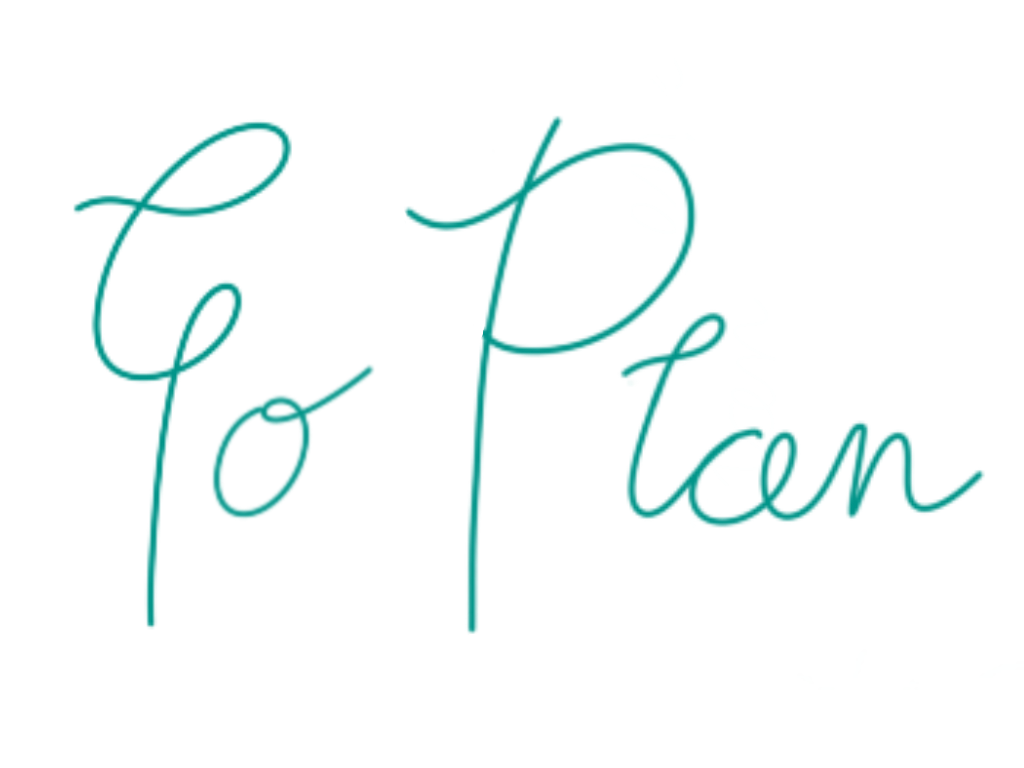 Go Plan